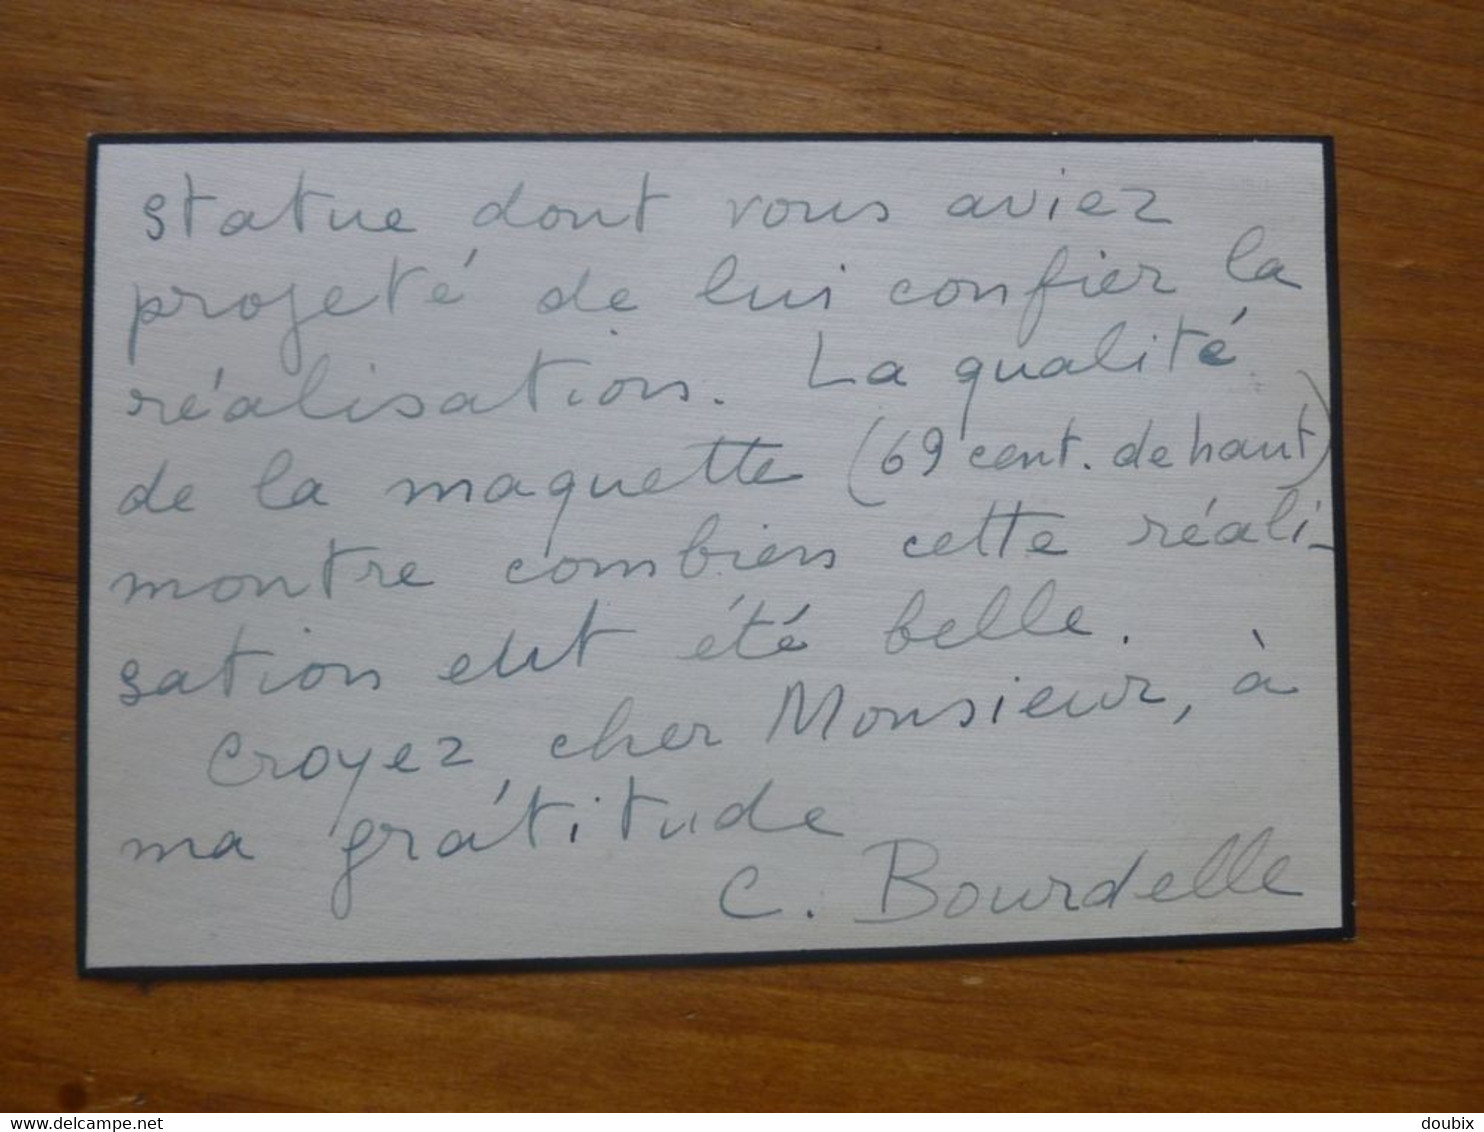 statue dont vous aviez
projeté de lui confier la
réalisation. La qualité
de la maquette (69 cent. de haut)
montre combien cette réali-
sation eut été belle.
Croyez, cher Monsieur, à
ma gratitude
C. Bourdelle
delcampe.net
doubix